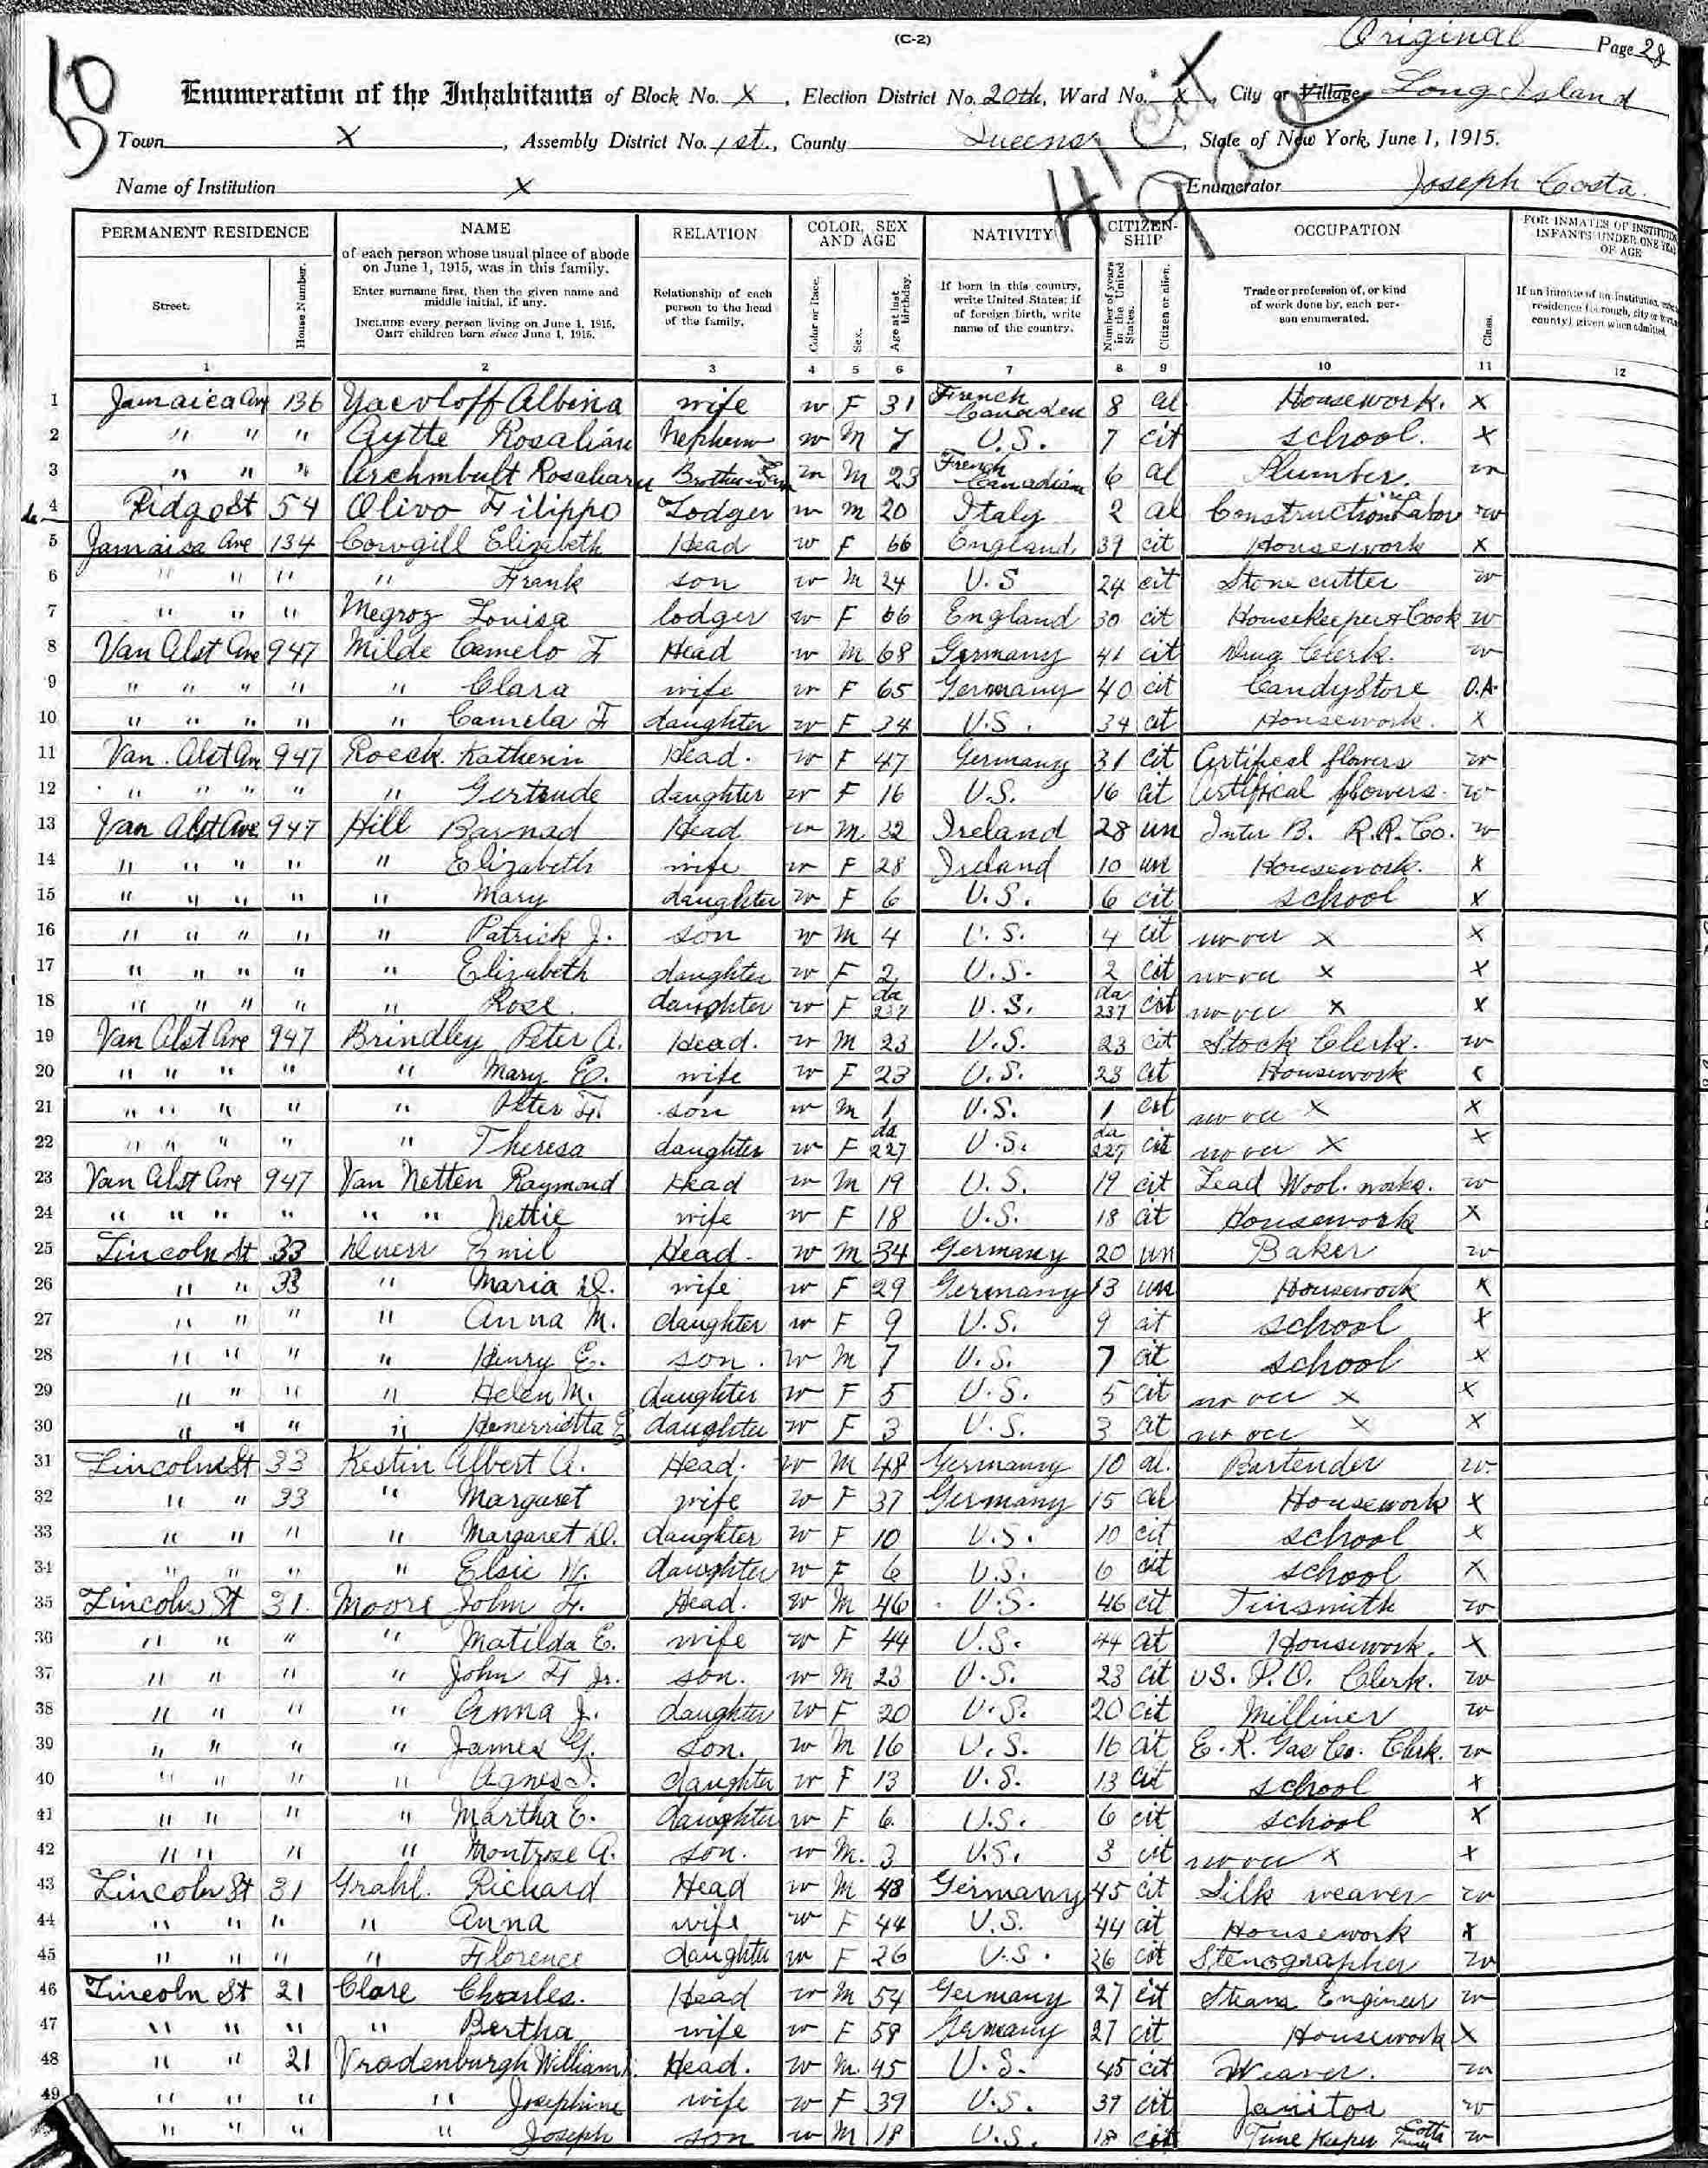 (C-2)
Original Page 28
50
Enumeration of the Inhabitants of Block No. X, Election District No. 20th, Ward No. X, City or Village Long Island
Town X, Assembly District No. 1st., County Queens, State of New York, June 1, 1915.
Name of Institution X Enumerator Joseph Costa.
41 cit
9 al
PERMANENT RESIDENCE NAME RELATION COLOR, SEX AND AGE NATIVITY CITIZENSHIP OCCUPATION FOR INMATES OF INSTITUTIONS INFANTS UNDER ONE YEAR OF AGE
Street. House Number. of each person whose usual place of abode on June 1, 1915, was in this family. Enter surname first, then the given name and middle initial, if any. INCLUDE every person living on June 1, 1915. OMIT children born since June 1, 1915. Relationship of each person to the head of the family. Color or Race. Sex. Age at last birthday. If born in this country, write United States; if of foreign birth, write name of the country. Number of years in the United States. Citizen or alien. Trade or profession of, or kind of work done by, each person enumerated. Class. If an inmate of an institution, residence (borough, city or county) given when admitted.
1 2 3 4 5 6 7 8 9 10 11 12
1 Jamaica Ave 136 Yaevloff Albina wife w F 31 French Canaden 8 al Housework. X
2 " " " Aytte Rosalian Nephew w M 7 U.S. 7 cit school. X
3 " " " Archmbult Rosaliary Brother in Law w M 23 French Canadian 6 al Plumber. w
4 Ridge St 54 Olivo Filippo Lodger w M 20 Italy 2 al Construction Labor w
5 Jamaisa Ave 134 Cowgill Elizabeth Head w F 66 England 39 cit Housework X
6 " " " " Frank son w M 24 U.S 24 cit Stone cutter w
7 " " " Megroz Louisa lodger w F 66 England 30 cit Housekeeper & Cook w
8 Van Alst Ave 947 Milde Camelo F Head w M 68 Germany 41 cit Drug Clerk. w
9 " " " " " Clara wife w F 65 Germany 40 cit Candy Store O.A.
10 " " " " " Camela F daughter w F 34 U.S. 34 cit Housework. X
11 Van. Alst Ave 947 Roeck. Katherin Head. w F 47 Germany 31 cit Artifical flowers w
12 " " " " " Gertrude daughter w F 16 U.S. 16 cit Artifical flowers. w
13 Van Alst Ave 947 Hill Barnad Head w M 32 Ireland 28 un Inter B. R.R. Co. w
14 " " " " " Elizabeth wife w F 28 Ireland 10 un Housework. X
15 " " " " " Mary daughter w F 6 U.S. 6 cit school X
16 " " " " " Patrick J. son w M 4 U.S. 4 cit no occ X X
17 " " " " " Elizabeth daughter w F 2 U.S. 2 cit no occ X X
18 " " " " " Rose. daughter w F da 237 U.S. da 237 cit no occ X X
19 Van Alst Ave 947 Brindley Peter A. Head. w M 23 U.S. 23 cit Stock Clerk. w
20 " " " " " Mary E. wife w F 23 U.S. 23 cit Housework
21 " " " " " Peter F. son w M 1 U.S. 1 cit no occ X X
22 " " " " " Theresa daughter w F da 227 U.S. da 227 cit no occ X X
23 Van Alst Ave 947 Van Netten Raymond Head w M 19 U.S. 19 cit Lead Wool. works. w
24 " " " " " " Nettie wife w F 18 U.S. 18 cit Housework X
25 Lincoln St 33 Duerr Emil Head. w M 34 Germany 20 un Baker w
26 " " 33 " Maria D. wife w F 29 Germany 13 un Housework X
27 " " " " Anna M. daughter w F 9 U.S. 9 cit school X
28 " " " " Henry E. son. w M 7 U.S. 7 cit school X
29 " " " " Helen M. daughter w F 5 U.S. 5 cit no occ X X
30 " " " " Henerrietta E daughter w F 3 U.S. 3 cit no occ X X
31 Lincoln St 33 Kestin Albert A. Head. w M 48 Germany 10 al. Bartender w.
32 " " 33 " Margaret wife w F 37 Germany 15 al Housework X
33 " " " " Margaret D. daughter w F 10 U.S. 10 cit school X
34 " " " " Elsie W. daughter w F 6 U.S. 6 cit school X
35 Lincoln St 31. Moore John F. Head. w M 46 U.S. 46 cit Tinsmith w
36 " " " " Matilda E. wife w F 44 U.S. 44 cit Housework. X
37 " " " " John F Jr. son. w M 23 U.S. 23 cit U.S. P.O. Clerk. w
38 " " " " Anna J. daughter w F 20 U.S. 20 cit Milliner w
39 " " " " James G. son. w M 16 U.S. 16 cit E. R. Gas Co. Clerk. w
40 " " " " Agnes J. daughter w F 13 U.S. 13 cit school X
41 " " " " Martha E. daughter w F 6 U.S. 6 cit school X
42 " " " " Montrose A. son. w M. 3 U.S. 3 cit no occ X X
43 Lincoln St 31 Grahl. Richard Head w M 48 Germany 45 cit Silk weaver w
44 " " " " Anna wife w F 44 U.S. 44 cit Housework X
45 " " " " Florence daughter w F 26 U.S. 26 cit Stenographer w
46 Lincoln St 21 Clare Charles. Head w M 54 Germany 27 cit Steam Engineer w
47 " " " " Bertha wife w F 58 Germany 27 cit Housework X
48 " " 21 Vradenburgh William Head. w M. 45 U.S. 45 cit Weaver. w
49 " " " " Josephine wife w F 39 U.S. 39 cit Janitor w
" " " " Joseph son w M 18 U.S. 18 cit Time Keeper w